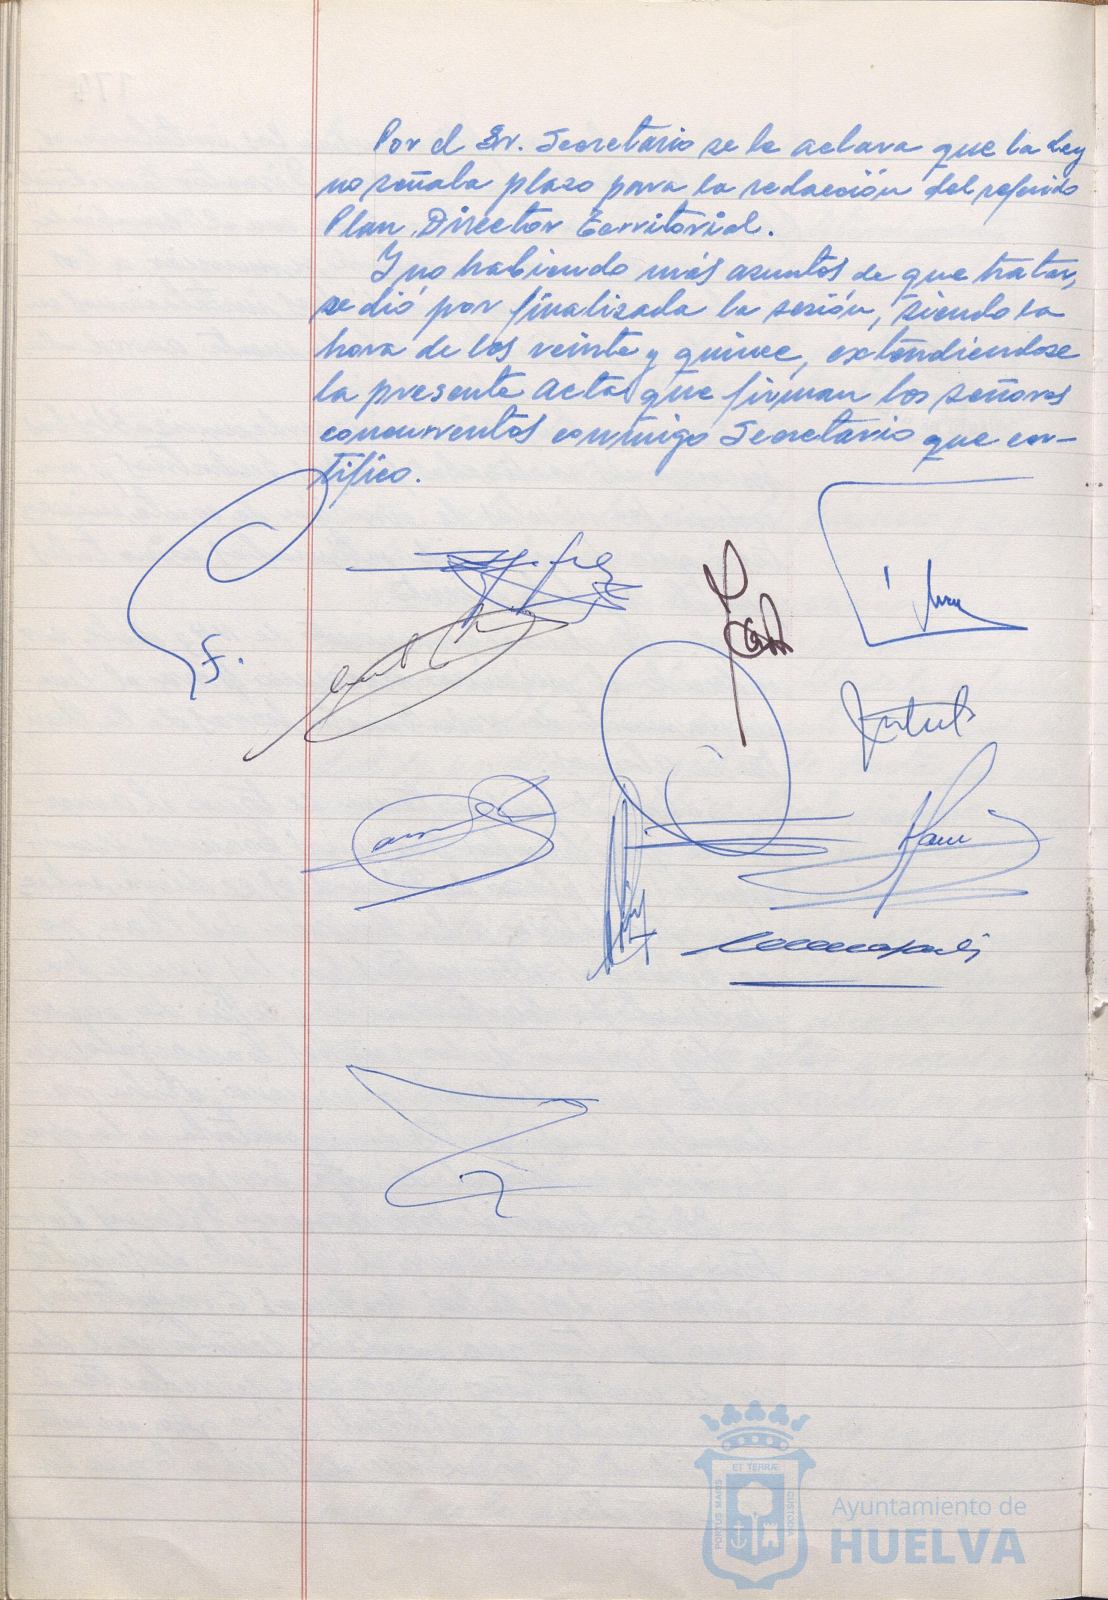 Por el Sr. Secretario se le aclara que la Ley
no señala plazo para la redacción del referido
Plan Director Territorial.
Y no habiendo más asuntos de que tratar,
se dió por finalizada la sesión, siendo la
hora de las veinte y quince, extendiendose
la presente acta que firman los señores
concurrentes conmigo Secretario que cer-
tifico.
ET TERRÆ
PORTUS MARIS
CUSTODIA
Ayuntamiento de
HUELVA